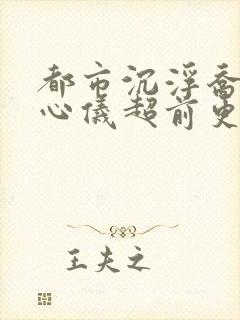 都市沉浮乔
心仪超前史
王夫之